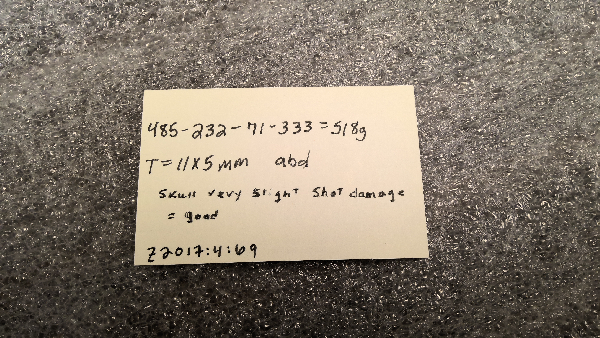 485-232-71-333=518g
T=11x5mm abd
Skull very slight shot damage
= good
Z2017:4:69